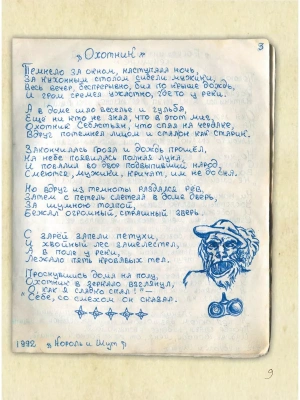 3
„Охотник"
Темнело за окном, наступала ночь,
За кухонным столом сидели мужики,
Весь вечер, беспрерывно, бил по крыше дождь,
И гром гремел ужастно, где-то у реки.
А в доме шло веселье и гульба,
Ещё ни кто не знал, что в этот миг,
Охотник Себастьян, что спал на чердаке,
Вдруг потемнел лицом и стал, как старик.
Закончилась гроза и дождь прошёл,
На небе появилась полная луна,
И повалил во двор подвыпивший народ,
Смеются, мужики, кричат, им не до сна.
Но вдруг из темноты раздался рёв,
Затем с петель слетела в доме дверь,
За шумною толпой,
Бежал огромный, страшный зверь.
С зарёй запели петухи,
И хвойный лес зашелестел,
А в поле у реки,
Лежало пять кровавых тел.
Проснувшись дома на полу,
Охотник в зеркало взглянул,
„О, как я сладко спал!" –
Себе, со смехом он сказал.
1992 „Король и Шут"
9